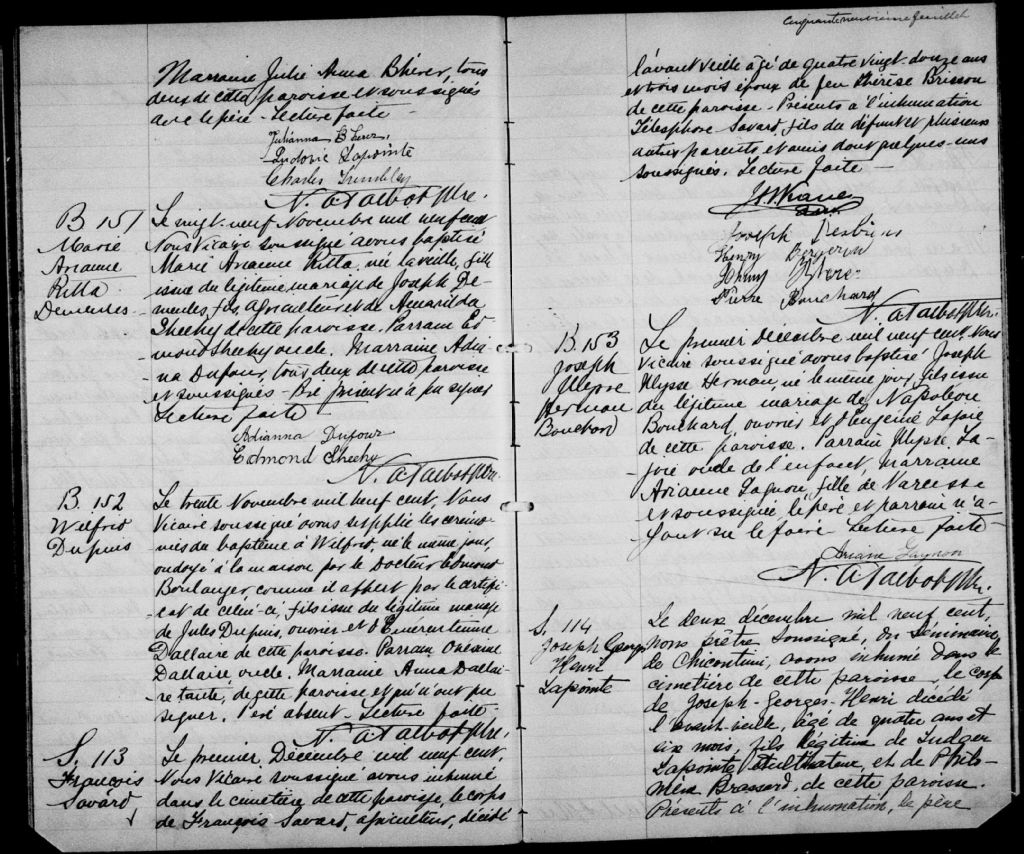 Marraine Julie Anna Bhérer, tous
deux de cette paroisse et soussignés
avec le père - Lecture faite -
Julianna Bherer
Ludovic Lapointe
Charles Tremblay
N. A. Talbot Ptre.
B 151
Marie
Arianne
Ritta
Demeules
Le vingt neuf Novembre mil neuf cent
Nous Vicaire soussigné avons baptisé
Marie Arianne Ritta, née la veille, fille
issue du légitime mariage de Joseph De-
meules, fils, agriculteur et de Amarilda
Sheehy de cette paroisse. Parrain Ed
mond Sheehy oncle. Marraine Adia-
na Dufour, tous deux de cette paroisse
et soussignés - Père présent n'a pu signer
Lecture faite
Adianna Dufour
Edmond Sheehy
N. A. Talbot Ptre.
B. 152
Wilfrid
Dupuis
Le trente Novembre mil neuf cent, Nous
Vicaire soussigné avons suppléé les cérémo-
nies du baptême à Wilfrid, né le même jour,
ondoyé à la maison par le Docteur Edmond
Boulanger, comme il appert par le certifi-
cat de celui-ci, fils issu du légitime mariage
de Jules Dupuis, ouvrier et d'Emérentienne
Dallaire de cette paroisse. Parrain Onésime
Dallaire, oncle. Marraine Anna Dallai-
re tante, de cette paroisse et qui n'ont pu
signer. Père absent - Lecture faite -
N. A. Talbot Ptre.
S. 113
François
Savard
Le premier, Décembre mil neuf cent,
Nous Vicaire soussigné avons inhumé
dans le cimetière de cette paroisse, le corps
de François Savard, agriculteur, décédé
Cinquante neuvième feuillet
l'avant veille âgé de quatre vingt-douze ans
et trois mois époux de feu Thérèse Brisson
de cette paroisse - Présents à l'inhumation
Télesphore Savard, fils du défunt et plusieurs
autres parents et amis dont quelques-uns
soussignés. Lecture faite -
Joseph Desbiens
Henry Bergeron
Bhérer
Pierre Bouchard
N. A. Talbot Ptre.
B. 153
Joseph
Ulysse
Herman
Bouchard
Le premier Décembre mil neuf cent, Nous
Vicaire soussigné avons baptisé Joseph
Ulysse Herman, né le même jour, fils issu
du légitime mariage de Napoléon
Bouchard, ouvrier et d'Eugénie Lajoie
de cette paroisse. Parrain Ulysse La-
joie oncle de l'enfant, Marraine
Arianne Gagnon, fille de Narcisse
et soussignée le père et parrain n'a-
yant su le faire Lecture faite -
Ariane Gagnon
N. A. Talbot Ptre.
S. 114
Joseph Georges
Henri
Lapointe
Le deux décembre mil neuf cent,
nous prêtre soussigné, du Séminaire
de Chicoutimi, avons inhumé dans le
cimetière de cette paroisse le corps
de Joseph-Georges-Henri décédé
l'avant-veille, âgé de quatre ans et
six mois, fils légitime de Ludger
Lapointe, cultivateur, et de Philo-
mène Brassard, de cette paroisse.
Présents à l'inhumation, le père